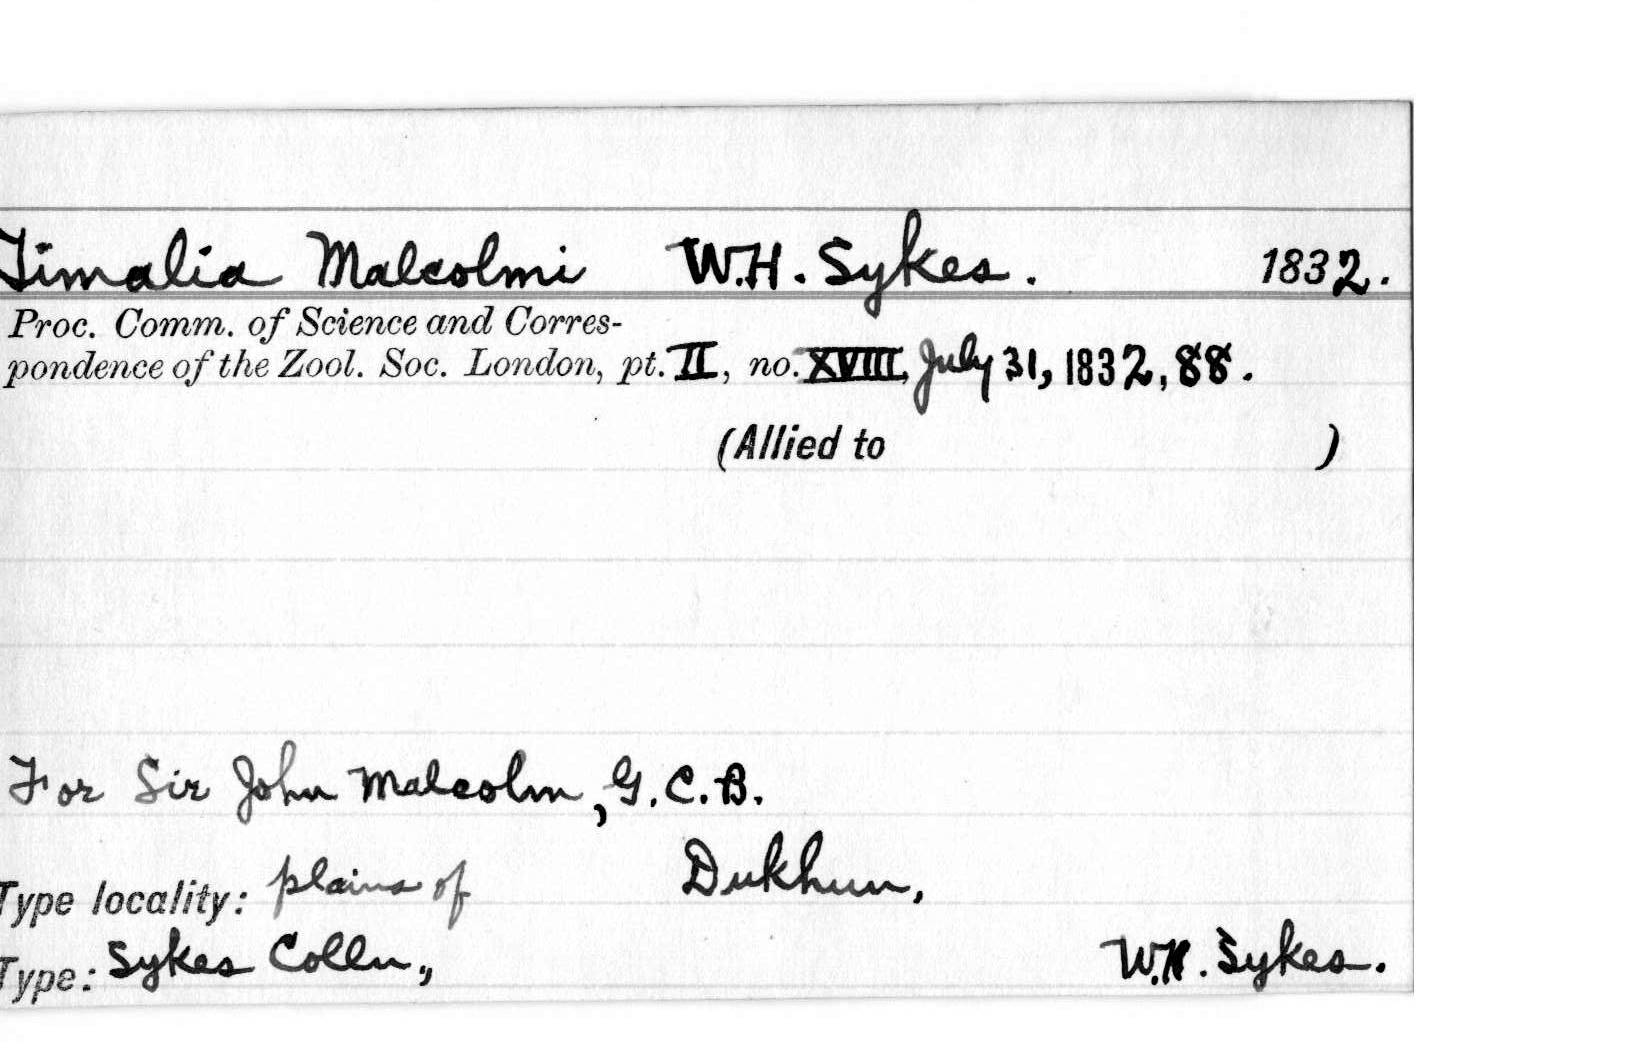 Timalia Malcolmi W.H. Sykes. 1832.
Proc. Comm. of Science and Corres-
pondence of the Zool. Soc. London, pt. II, no. XVIII, July 31, 1832, 88.
(Allied to )
For Sir John Malcolm, G.C.B.
Type locality: plains of Dukhun,
Type: Sykes Colln., W.H. Sykes.